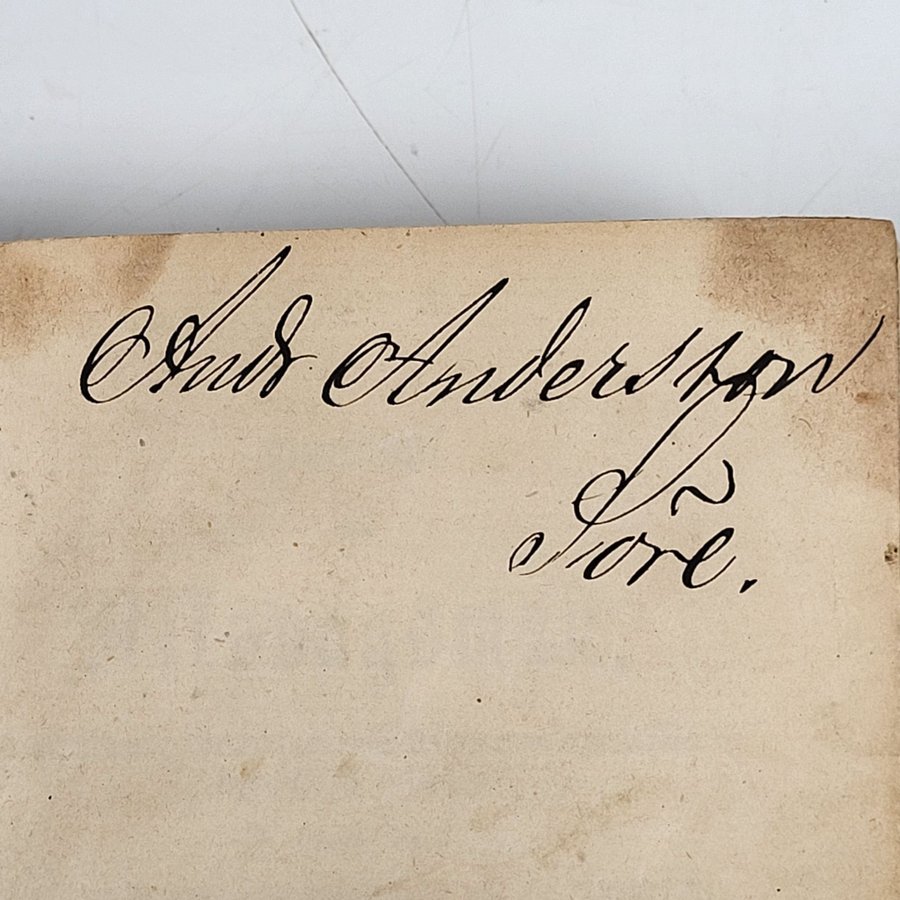 And. Andersson
Söre.